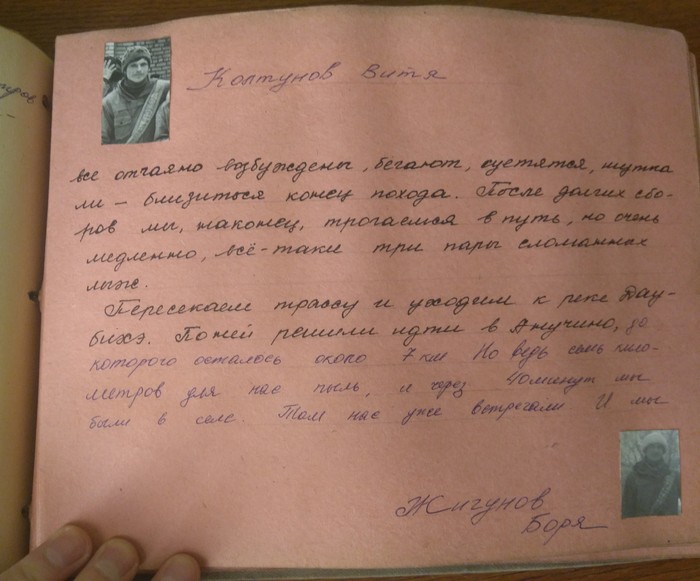 туров
Колтунов Витя
все отчаяно возбуждены, бегают, суетятся, шутка
ли – близиться конец похода. После долгих сбо-
ров мы, наконец, трогаемся в путь, но очень
медленно, всё-таки три пары сломанных
лыж.
Пересекаем трассу и уходим к реке Дау-
бихэ. По ней решили идти в Анучино, до
которого осталось около 7 км Но ведь семь кило-
метров для нас пыль, и через 40 минут мы
были в селе. Там нас уже встречали И мы
Жигунов
Боря